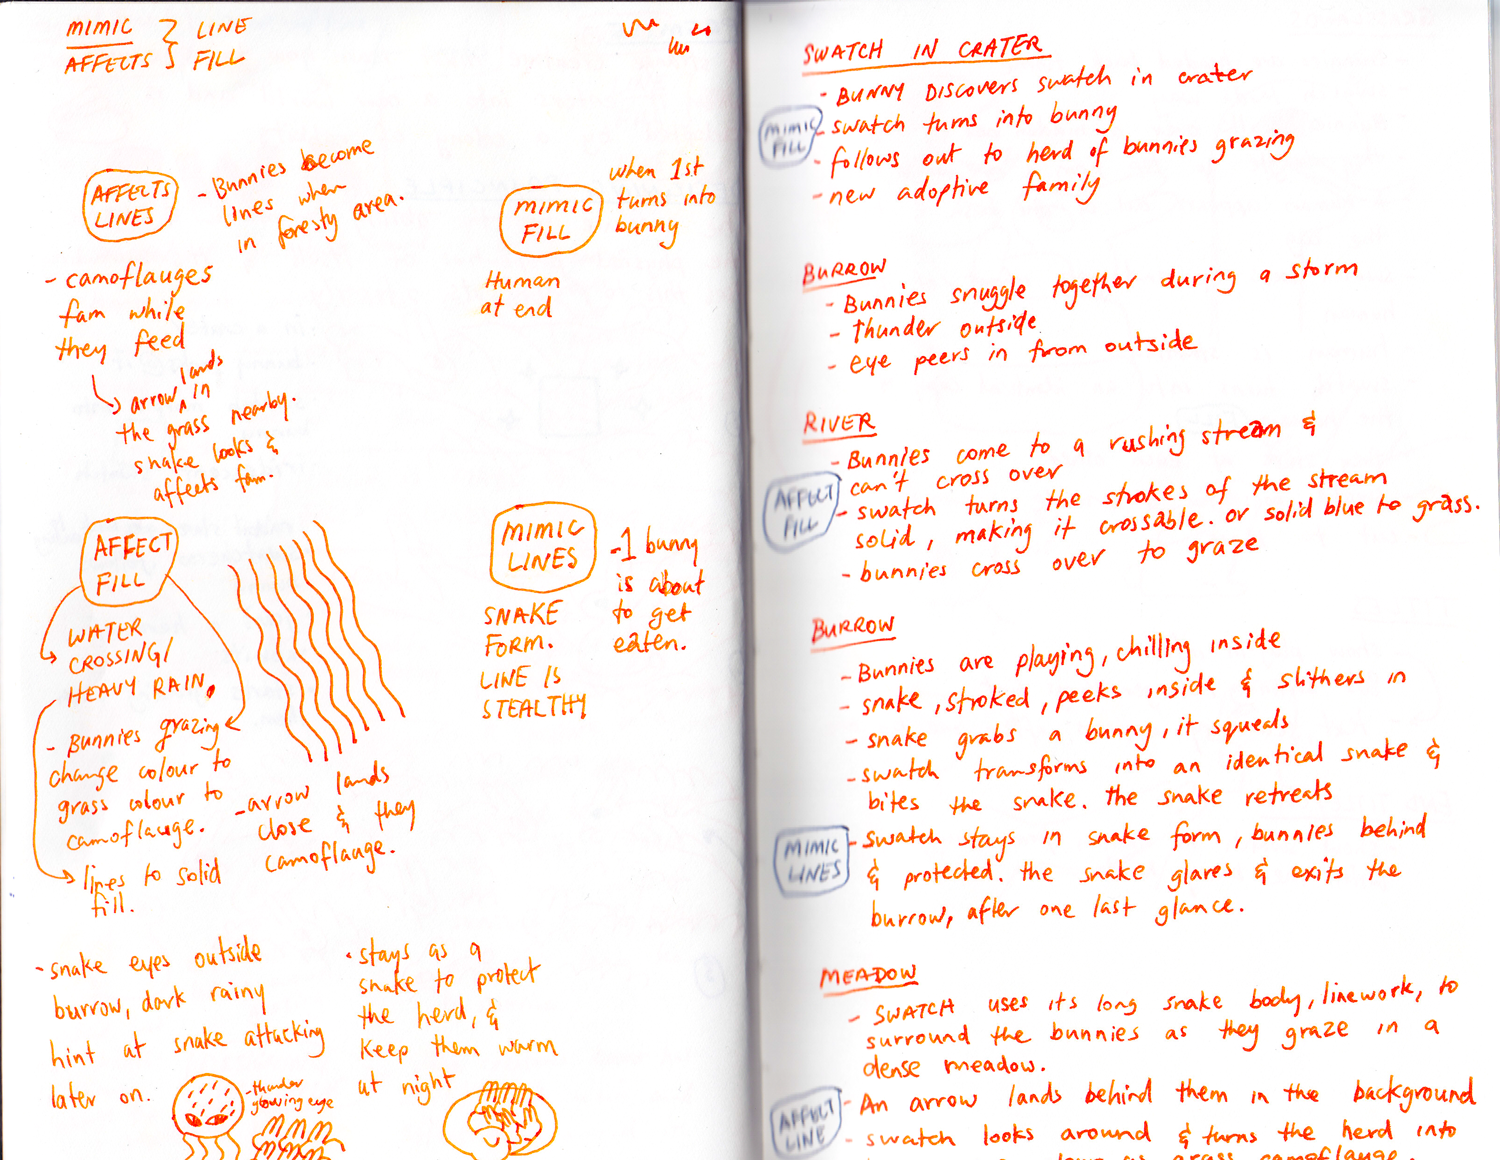 MIMIC } LINE
AFFECTS } FILL
AFFECTS
LINES
- Bunnies become
lines when
in foresty area.
- camoflauges
fam while
they feed
arrow lands in
the grass nearby.
snake looks &
affects fam.
MIMIC
FILL
when 1st
turns into
bunny
Human
at end
AFFECT
FILL
WATER
CROSSING/
HEAVY RAIN.
- Bunnies grazing
change colour to
grass colour to
camoflauge.
lines to solid
fill.
- arrow lands
close & they
camoflauge.
MIMIC
LINES
-1 bunny
is about
to get
eaten.
SNAKE
FORM.
LINE IS
STEALTHY
- snake eyes outside
burrow, dark rainy
hint at snake attacking
later on.
- thunder
glowing eye
• stays as a
snake to protect
the herd, &
keep them warm
at night
SWATCH IN CRATER
- BUNNY DISCOVERS swatch in crater
MIMIC
FILL
- swatch turns into bunny
- follows out to herd of bunnies grazing
- new adoptive family
BURROW
- Bunnies snuggle together during a storm
- Thunder outside
- eye peers in from outside
RIVER
- Bunnies come to a rushing stream &
can't cross over
AFFECT
FILL
- swatch turns the strokes of the stream
solid, making it crossable. or solid blue to grass.
- bunnies cross over to graze
BURROW
- Bunnies are playing, chilling inside
- snake, stroked, peeks inside & slithers in
- snake grabs a bunny, it squeals
- swatch transforms into an identical snake &
bites the snake. the snake retreats
MIMIC
LINES
- Swatch stays in snake form, bunnies behind
& protected. the snake glares & exits the
burrow, after one last glance.
MEADOW
- SWATCH uses its long snake body, linework, to
surround the bunnies as they graze in a
dense meadow.
AFFECT
LINE
- An arrow lands behind them in the background
- swatch looks around & turns the herd into
as grass camoflauge.